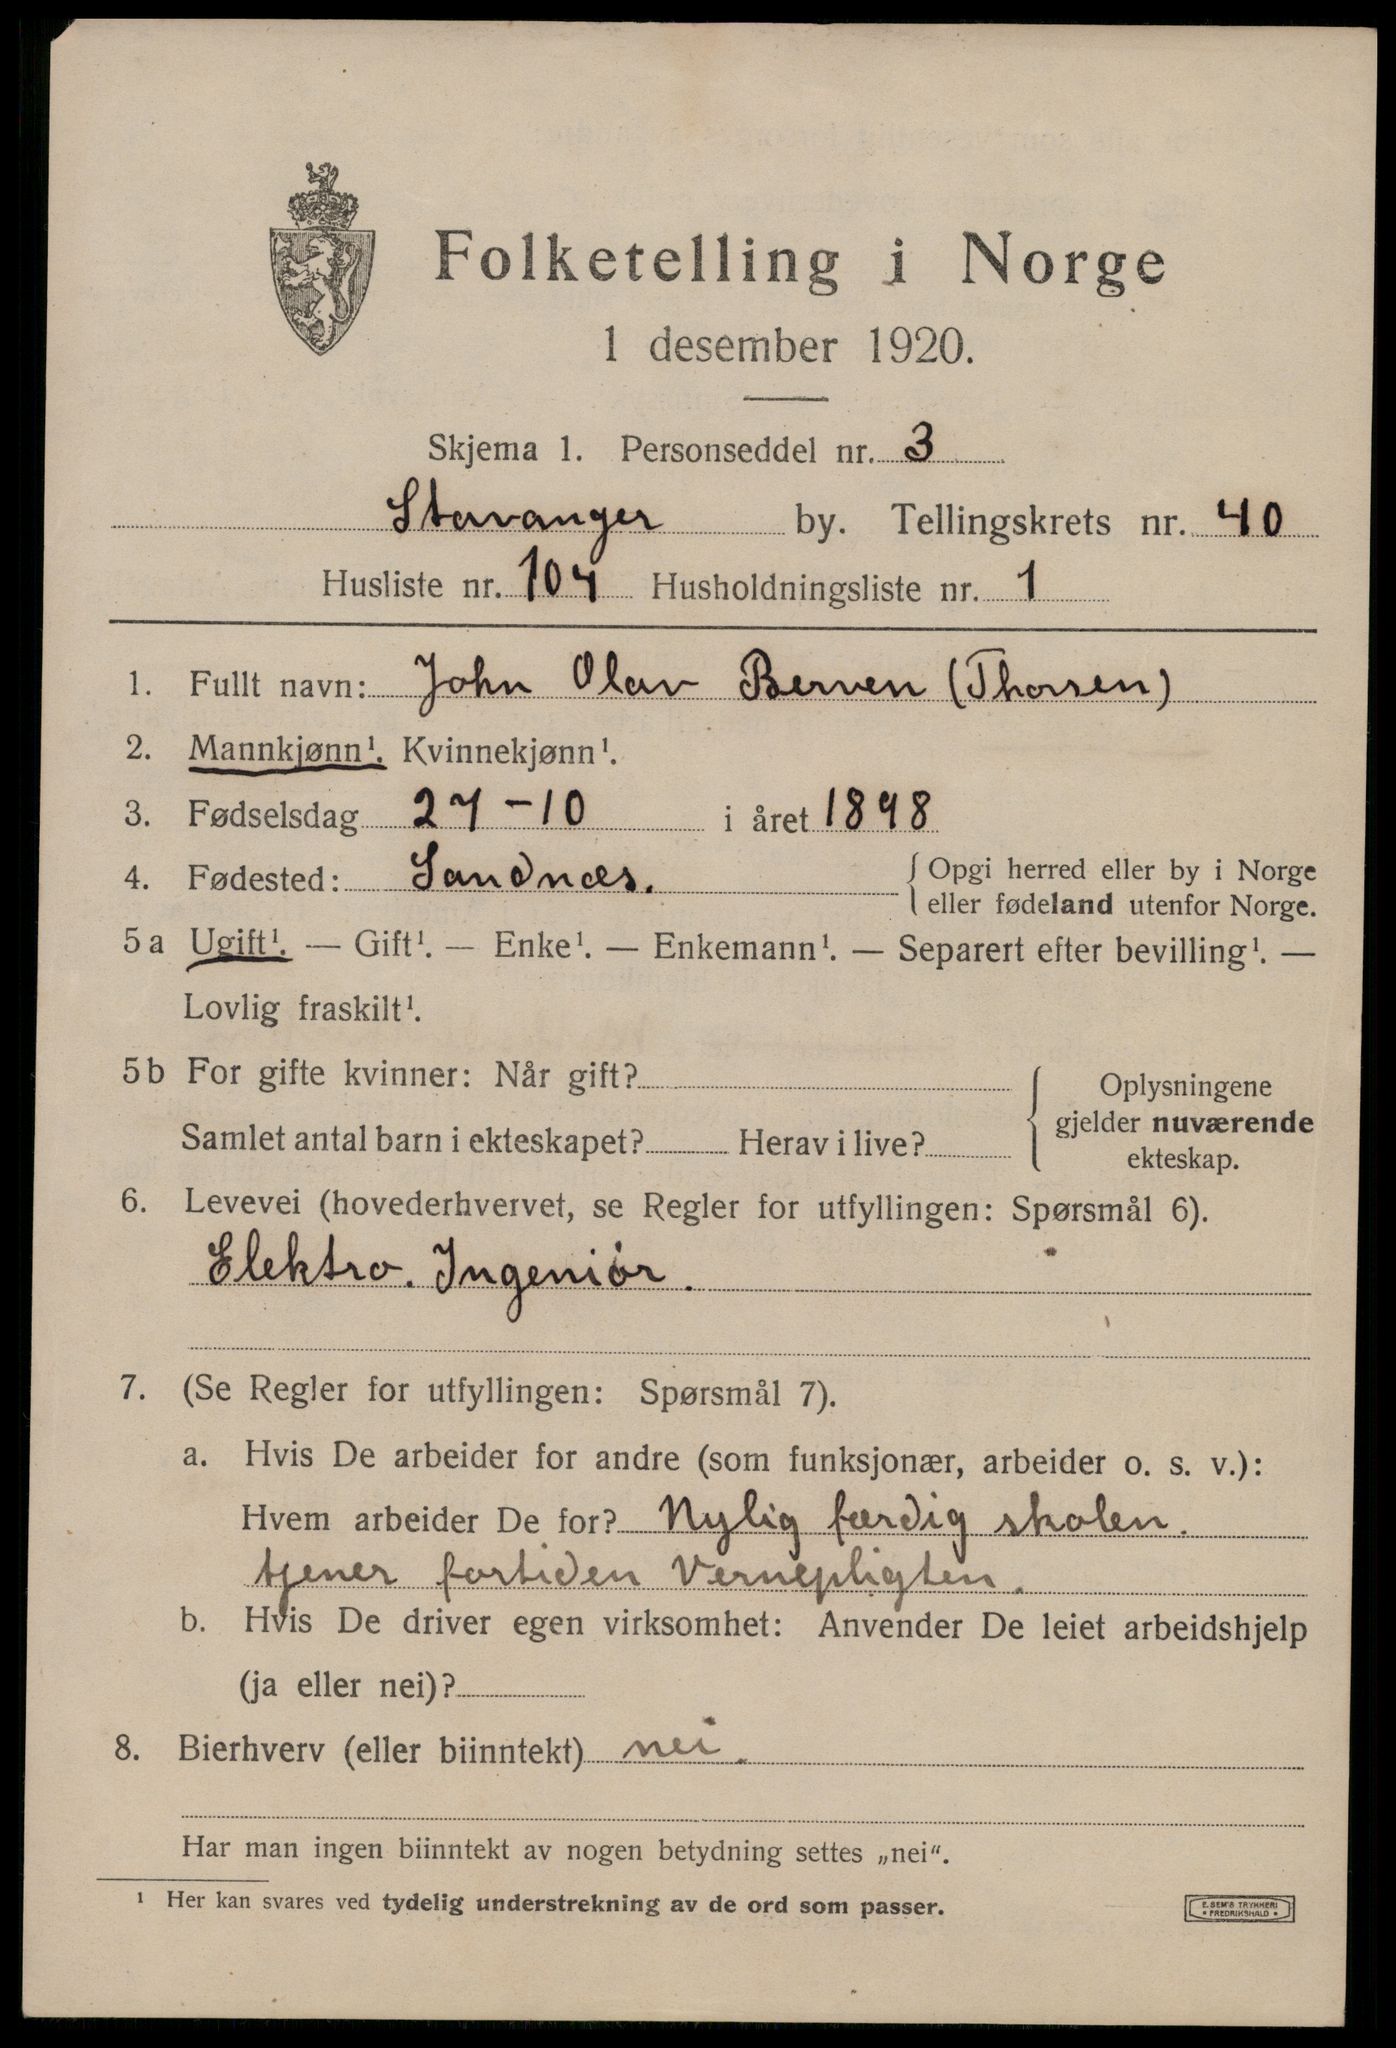 Folketelling i Norge
1 desember 1920.
Skjema 1. Personseddel nr. 3
Stavanger by. Tellingskrets nr. 40
Husliste nr. 104 Husholdningsliste nr. 1
1. Fullt navn: John Olav Berven (Thorsen)
2. Mannkjønn¹. Kvinnekjønn¹.
3. Fødselsdag 27-10 i året 1898
4. Fødested: Sandnæs. { Opgi herred eller by i Norge
eller fødeland utenfor Norge.
5a Ugift¹. — Gift¹. — Enke¹. — Enkemann¹. — Separert efter bevilling¹. —
Lovlig fraskilt¹.
5b For gifte kvinner: Når gift? { Oplysningene
gjelder nuværende
Samlet antal barn i ekteskapet? Herav i live?
ekteskap.
6. Levevei (hovederhvervet, se Regler for utfyllingen: Spørsmål 6).
Elektro. Ingeniør.
7. (Se Regler for utfyllingen: Spørsmål 7).
a. Hvis De arbeider for andre (som funksjonær, arbeider o. s. v.):
Hvem arbeider De for? Nylig færdig skolen.
tjener fortiden Vernepligten.
b. Hvis De driver egen virksomhet: Anvender De leiet arbeidshjelp
(ja eller nei)?
8. Bierhverv (eller biinntekt) nei.
Har man ingen biinntekt av nogen betydning settes „nei“.
¹ Her kan svares ved tydelig understrekning av de ord som passer.
E. SEM'S TRYKKERI
• FREDRIKSHALD •